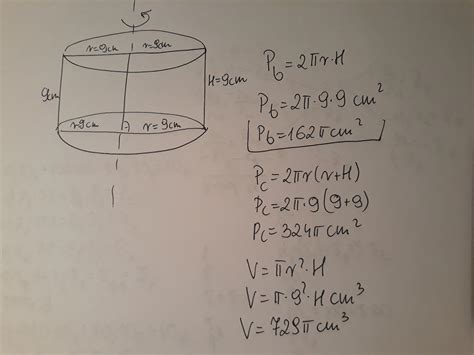 r=9cm r=9cm
9cm
H=9cm
r=9cm A r=9cm
P_b=2πr·H
P_b=2π·9·9 cm²
P_b=162π cm²
P_c=2πr(r+H)
P_c=2π·9(9+9)
P_c=324π cm²
V=πr²·H
V=π·9²·H cm³
V=729π cm³